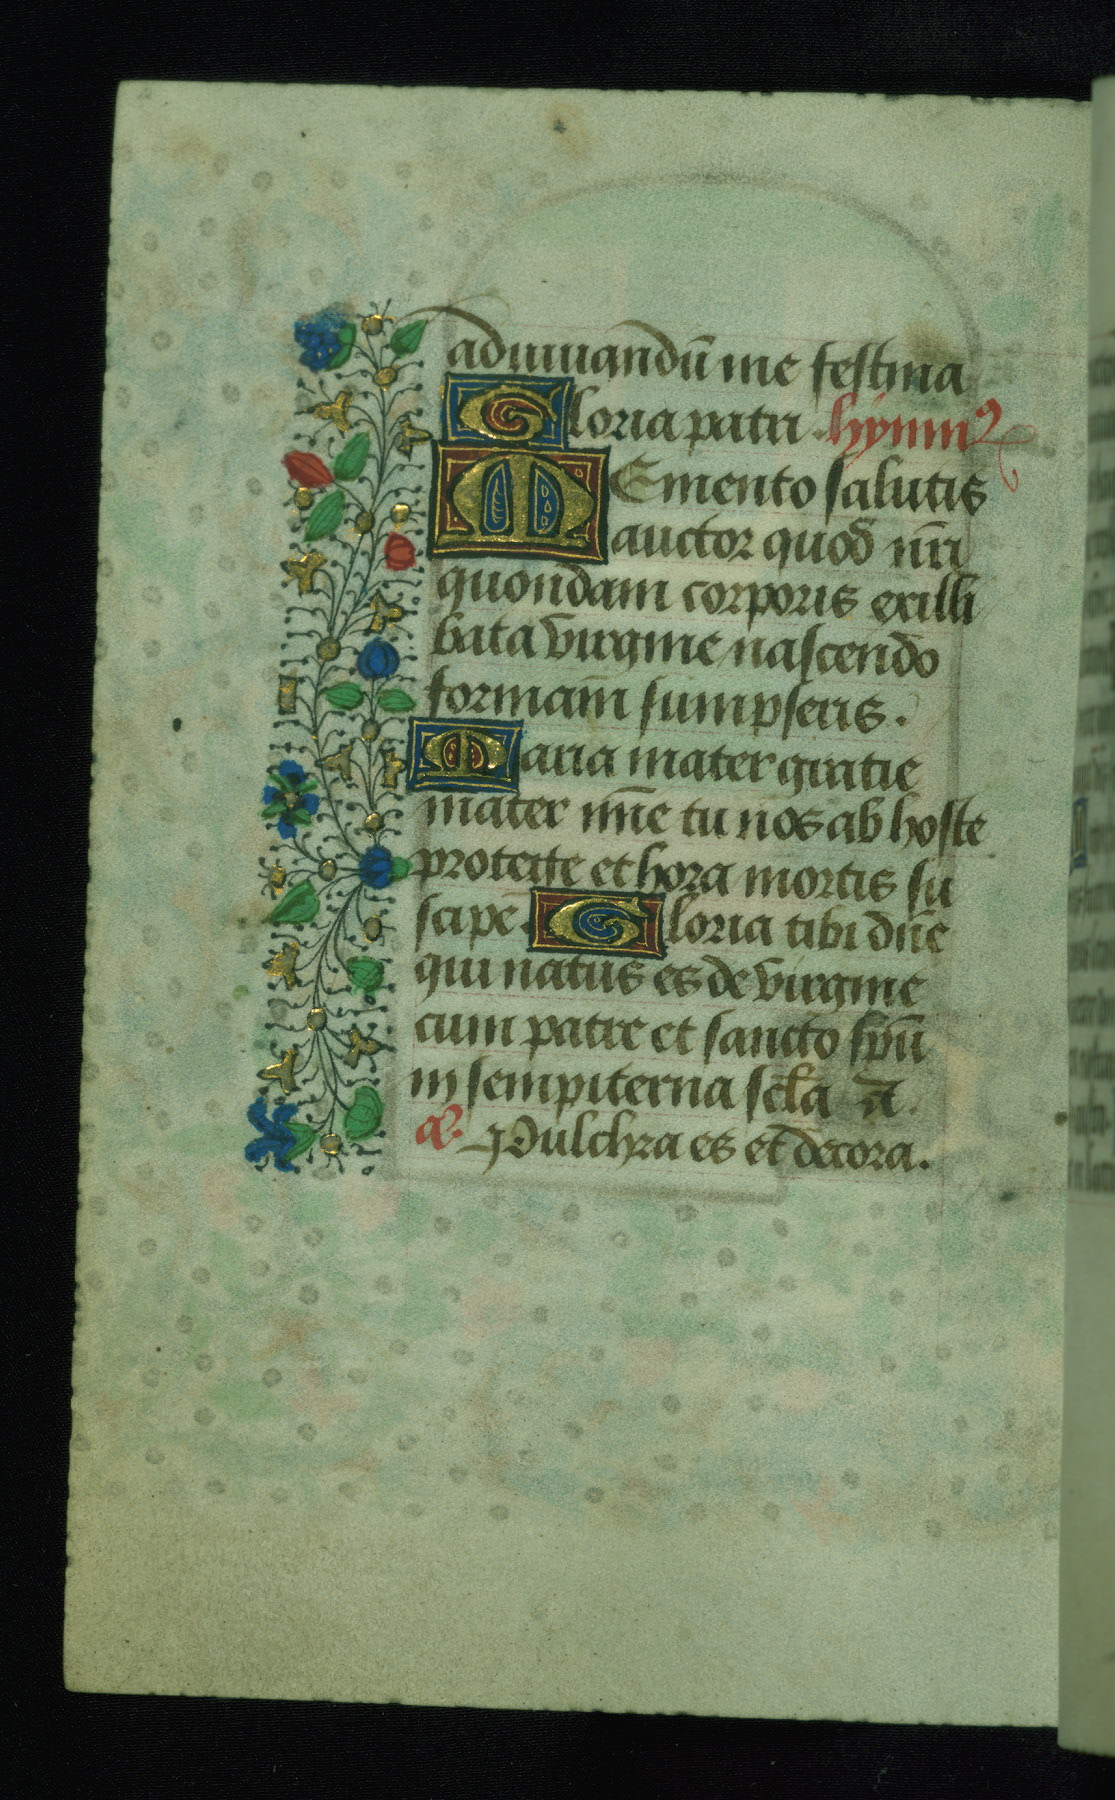 adiuuandū me festina
Gloria patri. hymnꝰ
MEmento salutis
auctor quod nr̄i
quondam corporis ex illi
bata virgine nascendo
formam sumpseris.
Maria mater gratie
mater mīe tu nos ab hoste
protege et hora mortis su
scipe. Gloria tibi dn̄e
qui natus es de virgine
cum patre et sancto sp̄u
in sempiterna sc̄la a.
a. Pulchra es et decora.